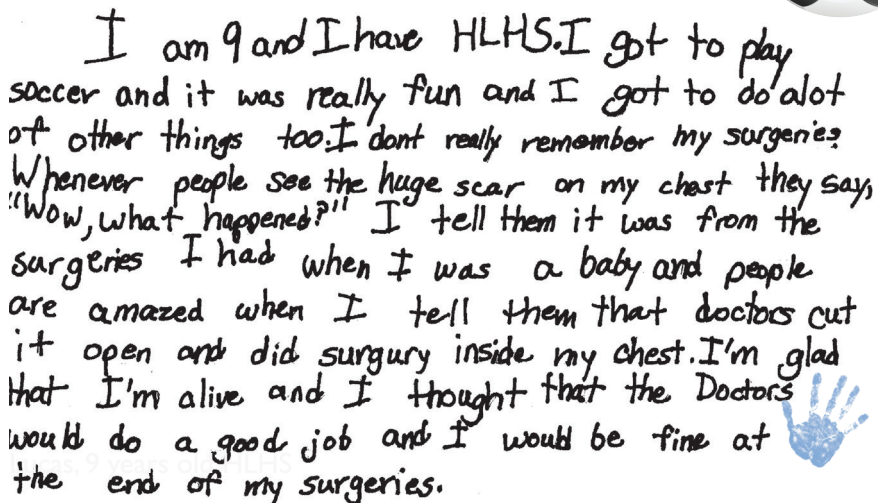 I am 9 and I have HLHS. I got to play
soccer and it was really fun and I got to do alot
of other things too. I dont really remember my surgeries
Whenever people see the huge scar on my chest they say,
"Wow, what happened?" I tell them it was from the
surgeries I had when I was a baby and people
are amazed when I tell them that doctors cut
it open and did surgury inside my chest. I'm glad
that I'm alive and I thought that the Doctors
would do a good job and I would be fine at
Lucas, 9 years old HLHS
the end of my surgeries.